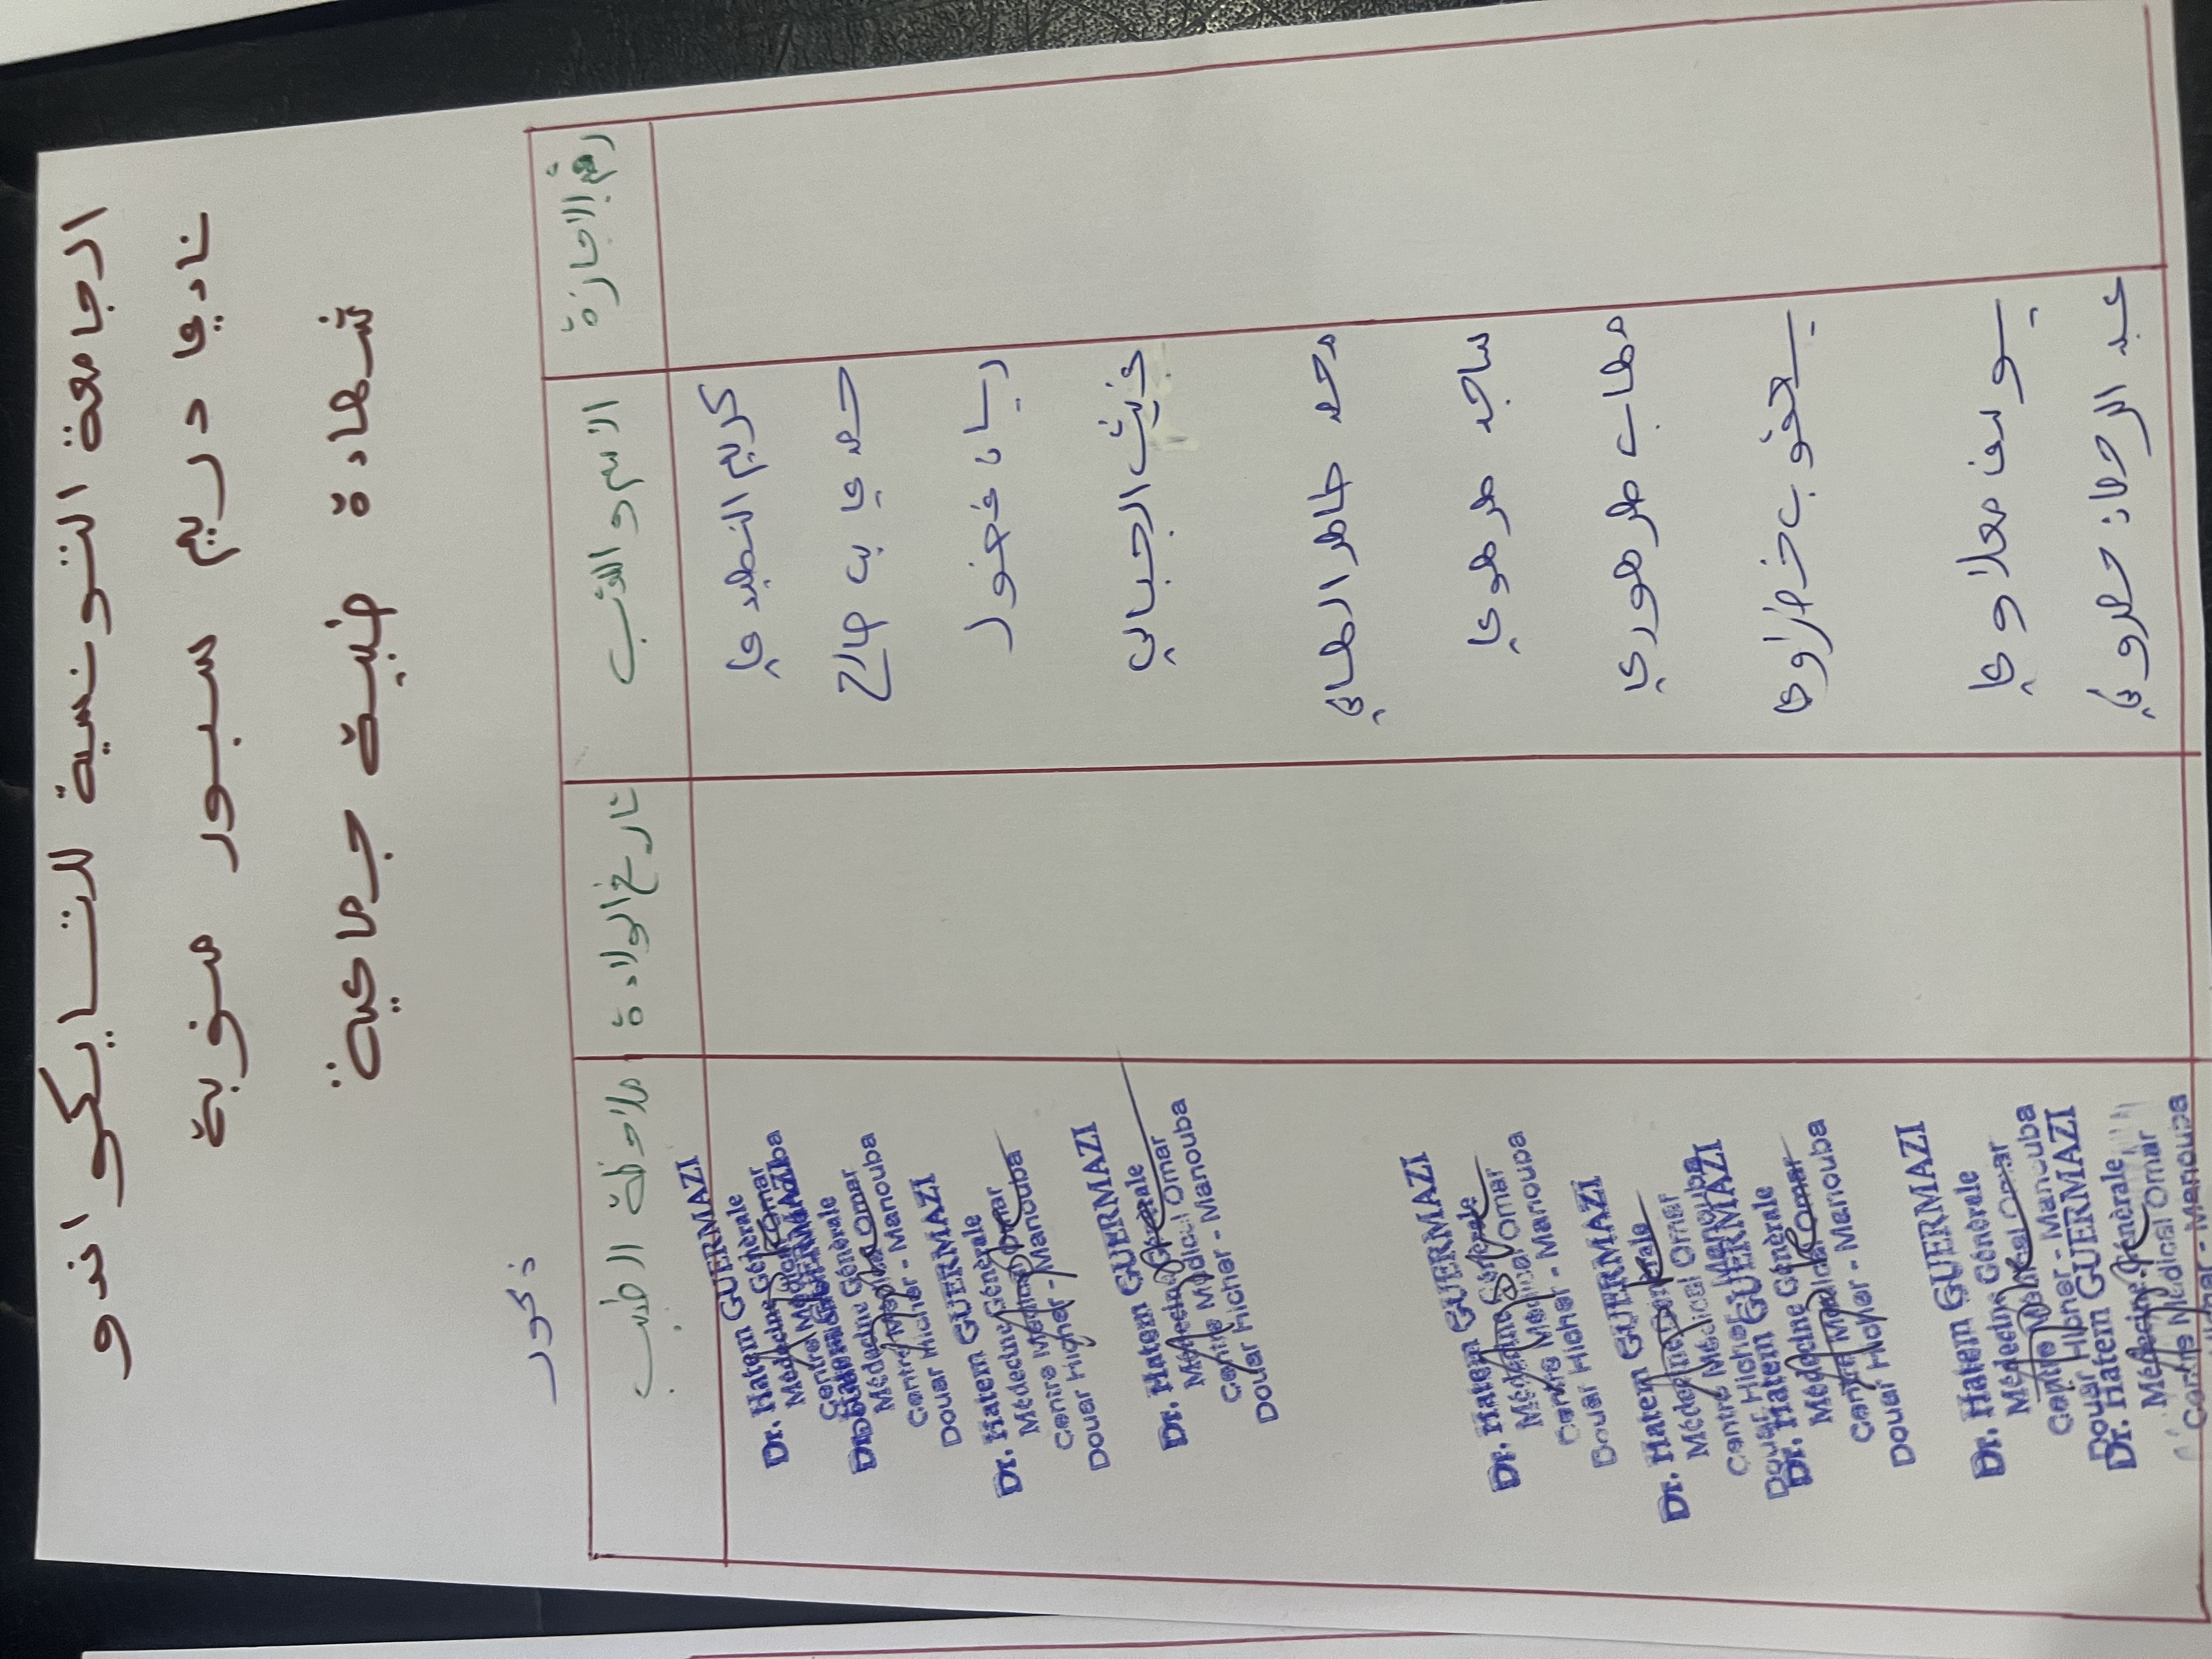 الجامعة التونسية للتايكواندو
نادي دريم سبور منوبة
شهادة طبية جماعية
ذكور
رقم الاجازة
الاسم و اللقب
تاريخ الولادة
ملاحظة الطبيب
كريم
Dr. Hatem GUERMAZI
Médecine Générale
حمدي بن صالح
Dr. Hatem GUERMAZI
Médecine Générale
Centre Médical Omar
Douar Hicher - Manouba
ريان
Dr. Hatem GUERMAZI
Médecine Générale
Centre Médical Omar
Douar Hicher - Manouba
الجبالي
Dr. Hatem GUERMAZI
Médecine Générale
Centre Médical Omar
Douar Hicher - Manouba
محمد
ساجد
Dr. Hatem GUERMAZI
Médecine Générale
Centre Médical Omar
Douar Hicher - Manouba
Dr. Hatem GUERMAZI
Médecine Générale
Centre Médical Omar
Douar Hicher - Manouba
يعقوب
Dr. Hatem GUERMAZI
Médecine Générale
Centre Médical Omar
Douar Hicher - Manouba
يوسف معلاوي
Dr. Hatem GUERMAZI
Médecine Générale
Centre Médical Omar
Douar Hicher - Manouba
عبد الرحمان
Dr. Hatem GUERMAZI
Médecine Générale
Centre Médical Omar